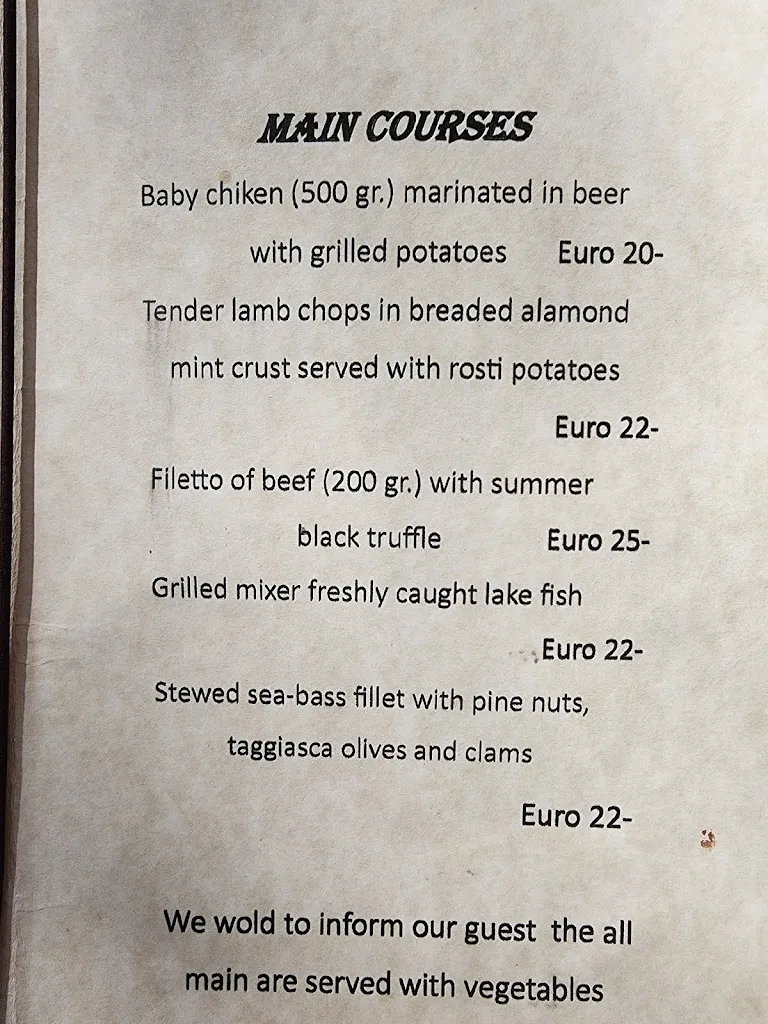 MAIN COURSES
Baby chiken (500 gr.) marinated in beer
with grilled potatoes Euro 20-
Tender lamb chops in breaded alamond
mint crust served with rosti potatoes
Euro 22-
Filetto of beef (200 gr.) with summer
black truffle Euro 25-
Grilled mixer freshly caught lake fish
Euro 22-
Stewed sea-bass fillet with pine nuts,
taggiasca olives and clams
Euro 22-
We wold to inform our guest the all
main are served with vegetables